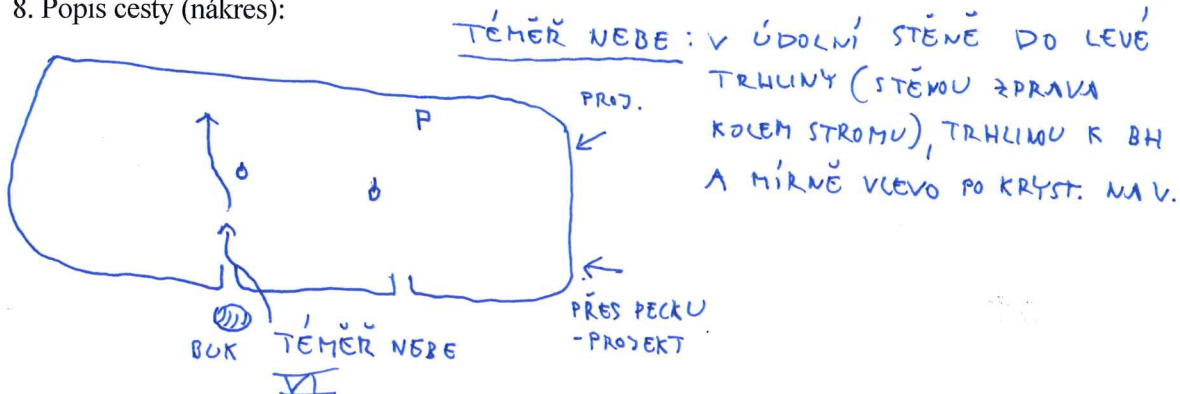 8. Popis cesty (nákres):
TÉMĚŘ NEBE : V ÚDOLNÍ STĚNĚ DO LEVÉ
TRHLINY (STĚNOU ZPRAVA
KOLEM STROMU), TRHLINOU K BH
A MÍRNĚ VLEVO PO KRYST. NA V.
PROJ.
P
PŘES PECKU
-PROJEKT
BUK
TÉMĚŘ NEBE
VI